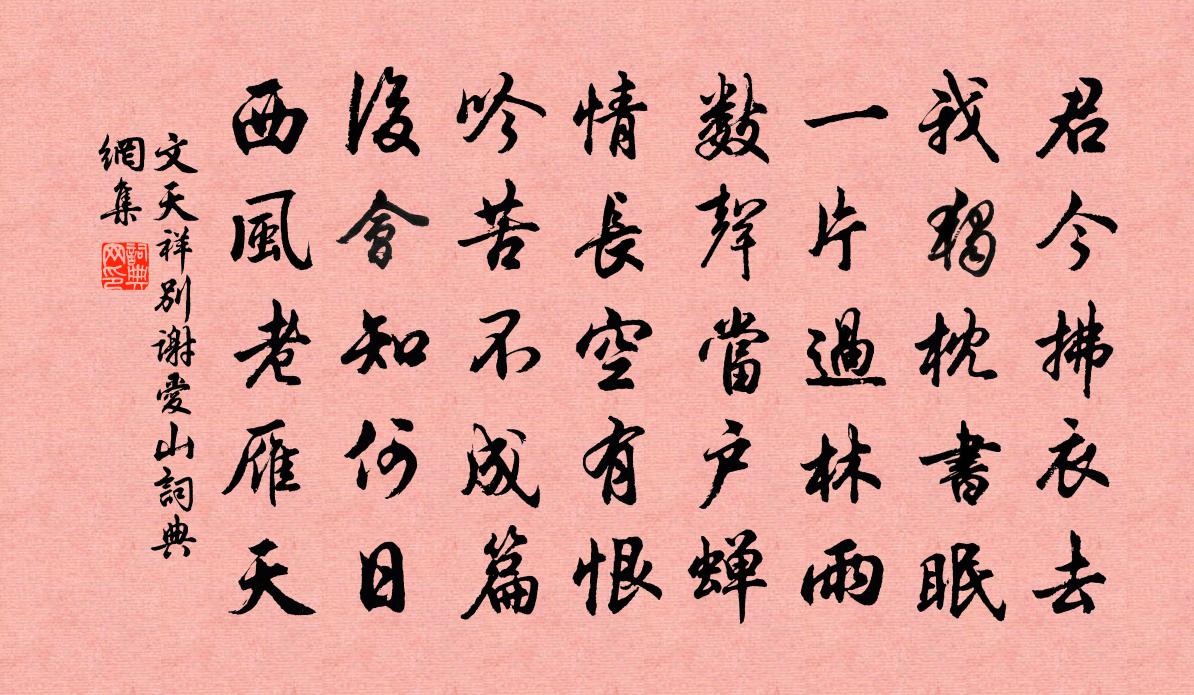 君今拂衣去
我獨枕書眠
一片過林雨
數聲當户蝉
情長空有恨
吟苦不成篇
後會知何日
西風老雁天
文天祥別謝愛山詞典
網集
詞典
网印